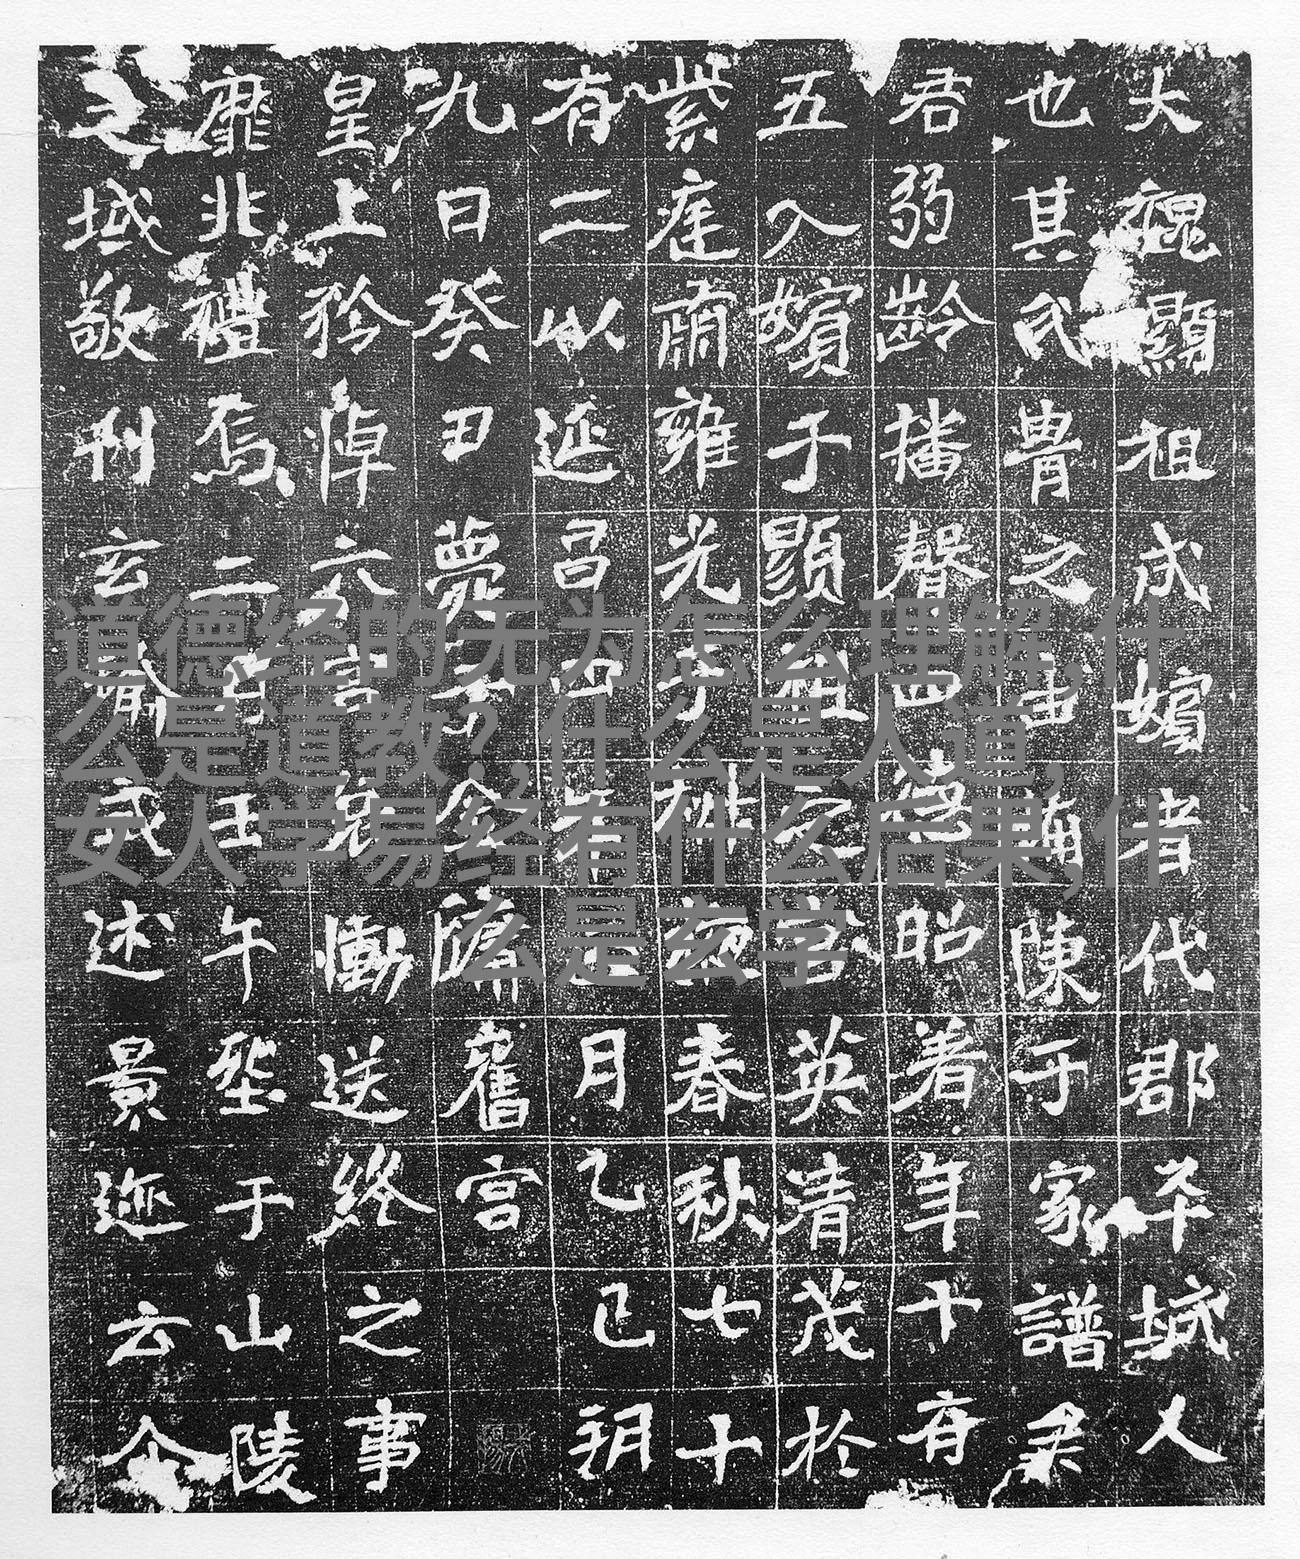 大魏顯祖成嬪者代郡平城人
也其氏胄之由備陳于家譜矣
君弱齡播馨四德昭著年十有
五入嬪于顯祖之宮英清茂於
紫庭肅雍光于椒掖春秋七十
有二以延昌四年正月乙巳朔
九日癸丑薨于金墉舊宮
皇上矜悼六宮哀慟送終之事
靡非禮焉二月壬午塟于山陵
之域敬刊玄瑜式述景迹云尒
道德经的无为怎么理解,什
么是道教?,什么是人道,
女人学易经有什么后果,什
么是玄学